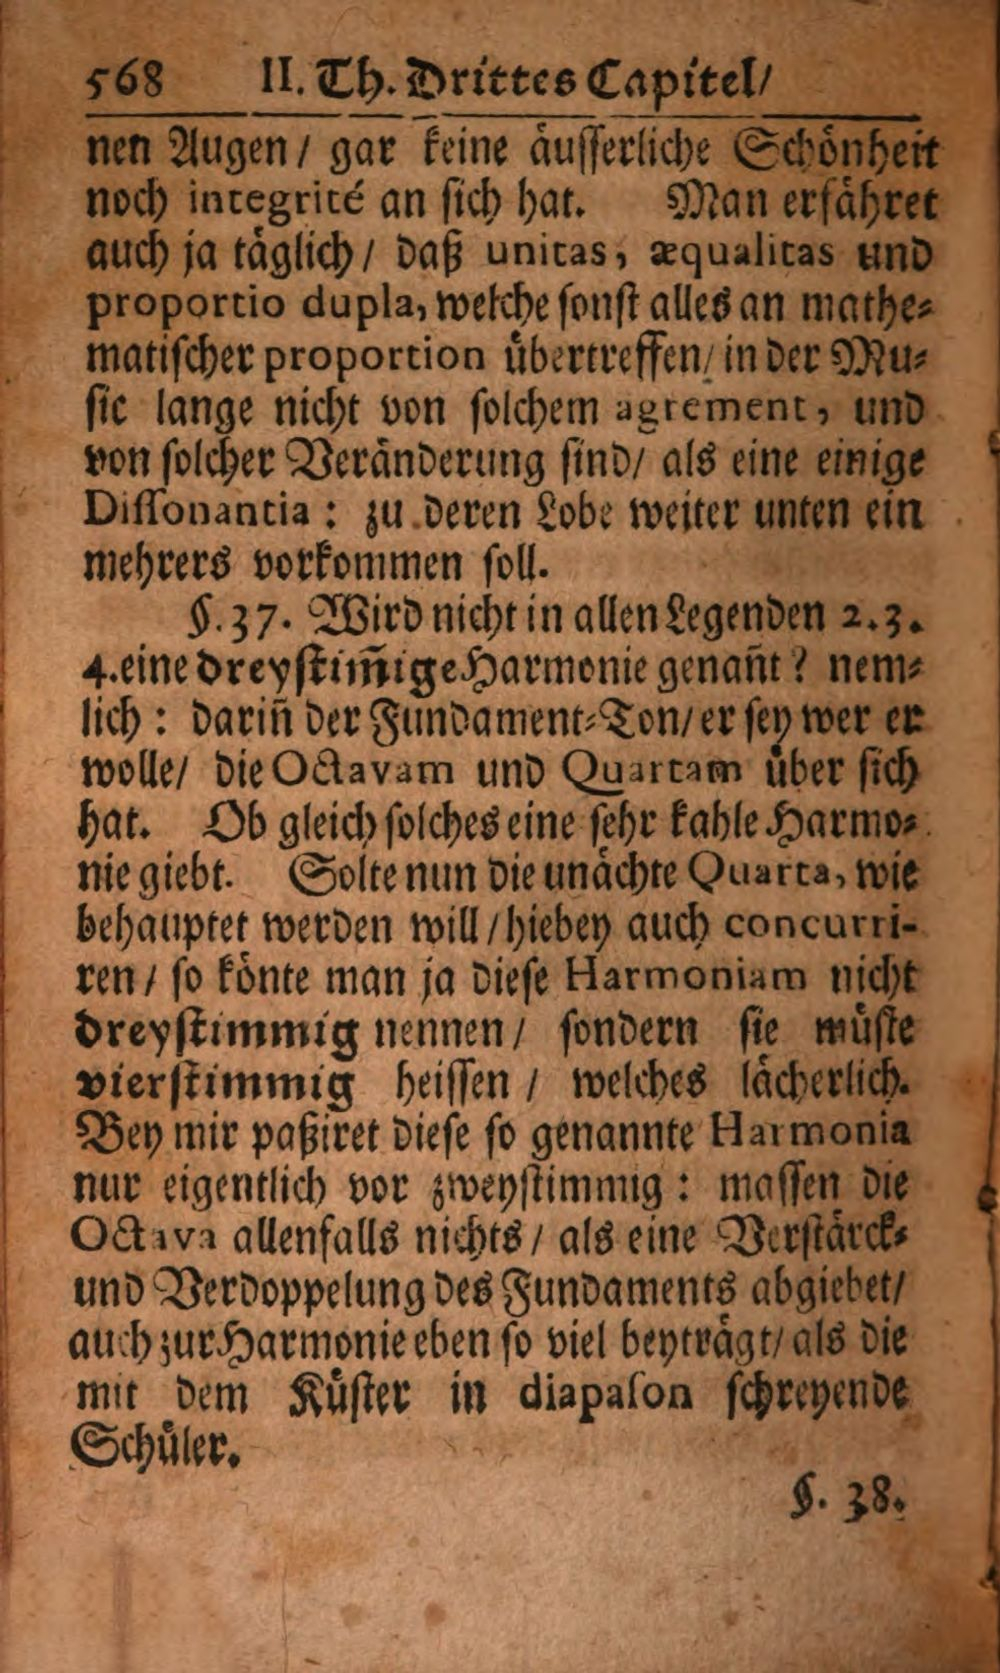 568 II. Th. Drittes Capitel/
nen Augen / gar keine äusserliche Schönheit
noch integrité an sich hat. Man erfähret
auch ja täglich / daß unitas, æqualitas und
proportio dupla, welche sonst alles an mathe-
matischer proportion übertreffen / in der Mu-
sic lange nicht von solchem agrement, und
von solcher Veränderung sind / als eine einige
Dissonantia : zu deren Lobe weiter unten ein
mehrers vorkommen soll.
§. 37. Wird nicht in allen Legenden 2. 3.
4. eine dreystim̃ige Harmonie genañt ? nem-
lich : dariñ der Fundament-Ton / er sey wer er
wolle / die Octavam und Quartam über sich
hat. Ob gleich solches eine sehr kahle Harmo-
nie giebt. Solte nun die unächte Quarta, wie
behauptet werden will / hiebey auch concurri-
ren / so könte man ja diese Harmoniam nicht
dreystimmig nennen / sondern sie müste
vierstimmig heissen / welches lächerlich.
Bey mir paßiret diese so genannte Harmonia
nur eigentlich vor zweystimmig : massen die
Octava allenfalls nichts / als eine Verstärck-
und Verdoppelung des Fundaments abgiebet /
auch zur Harmonie eben so viel beyträgt / als die
mit dem Küster in diapason schreyende
Schüler.
§. 38.